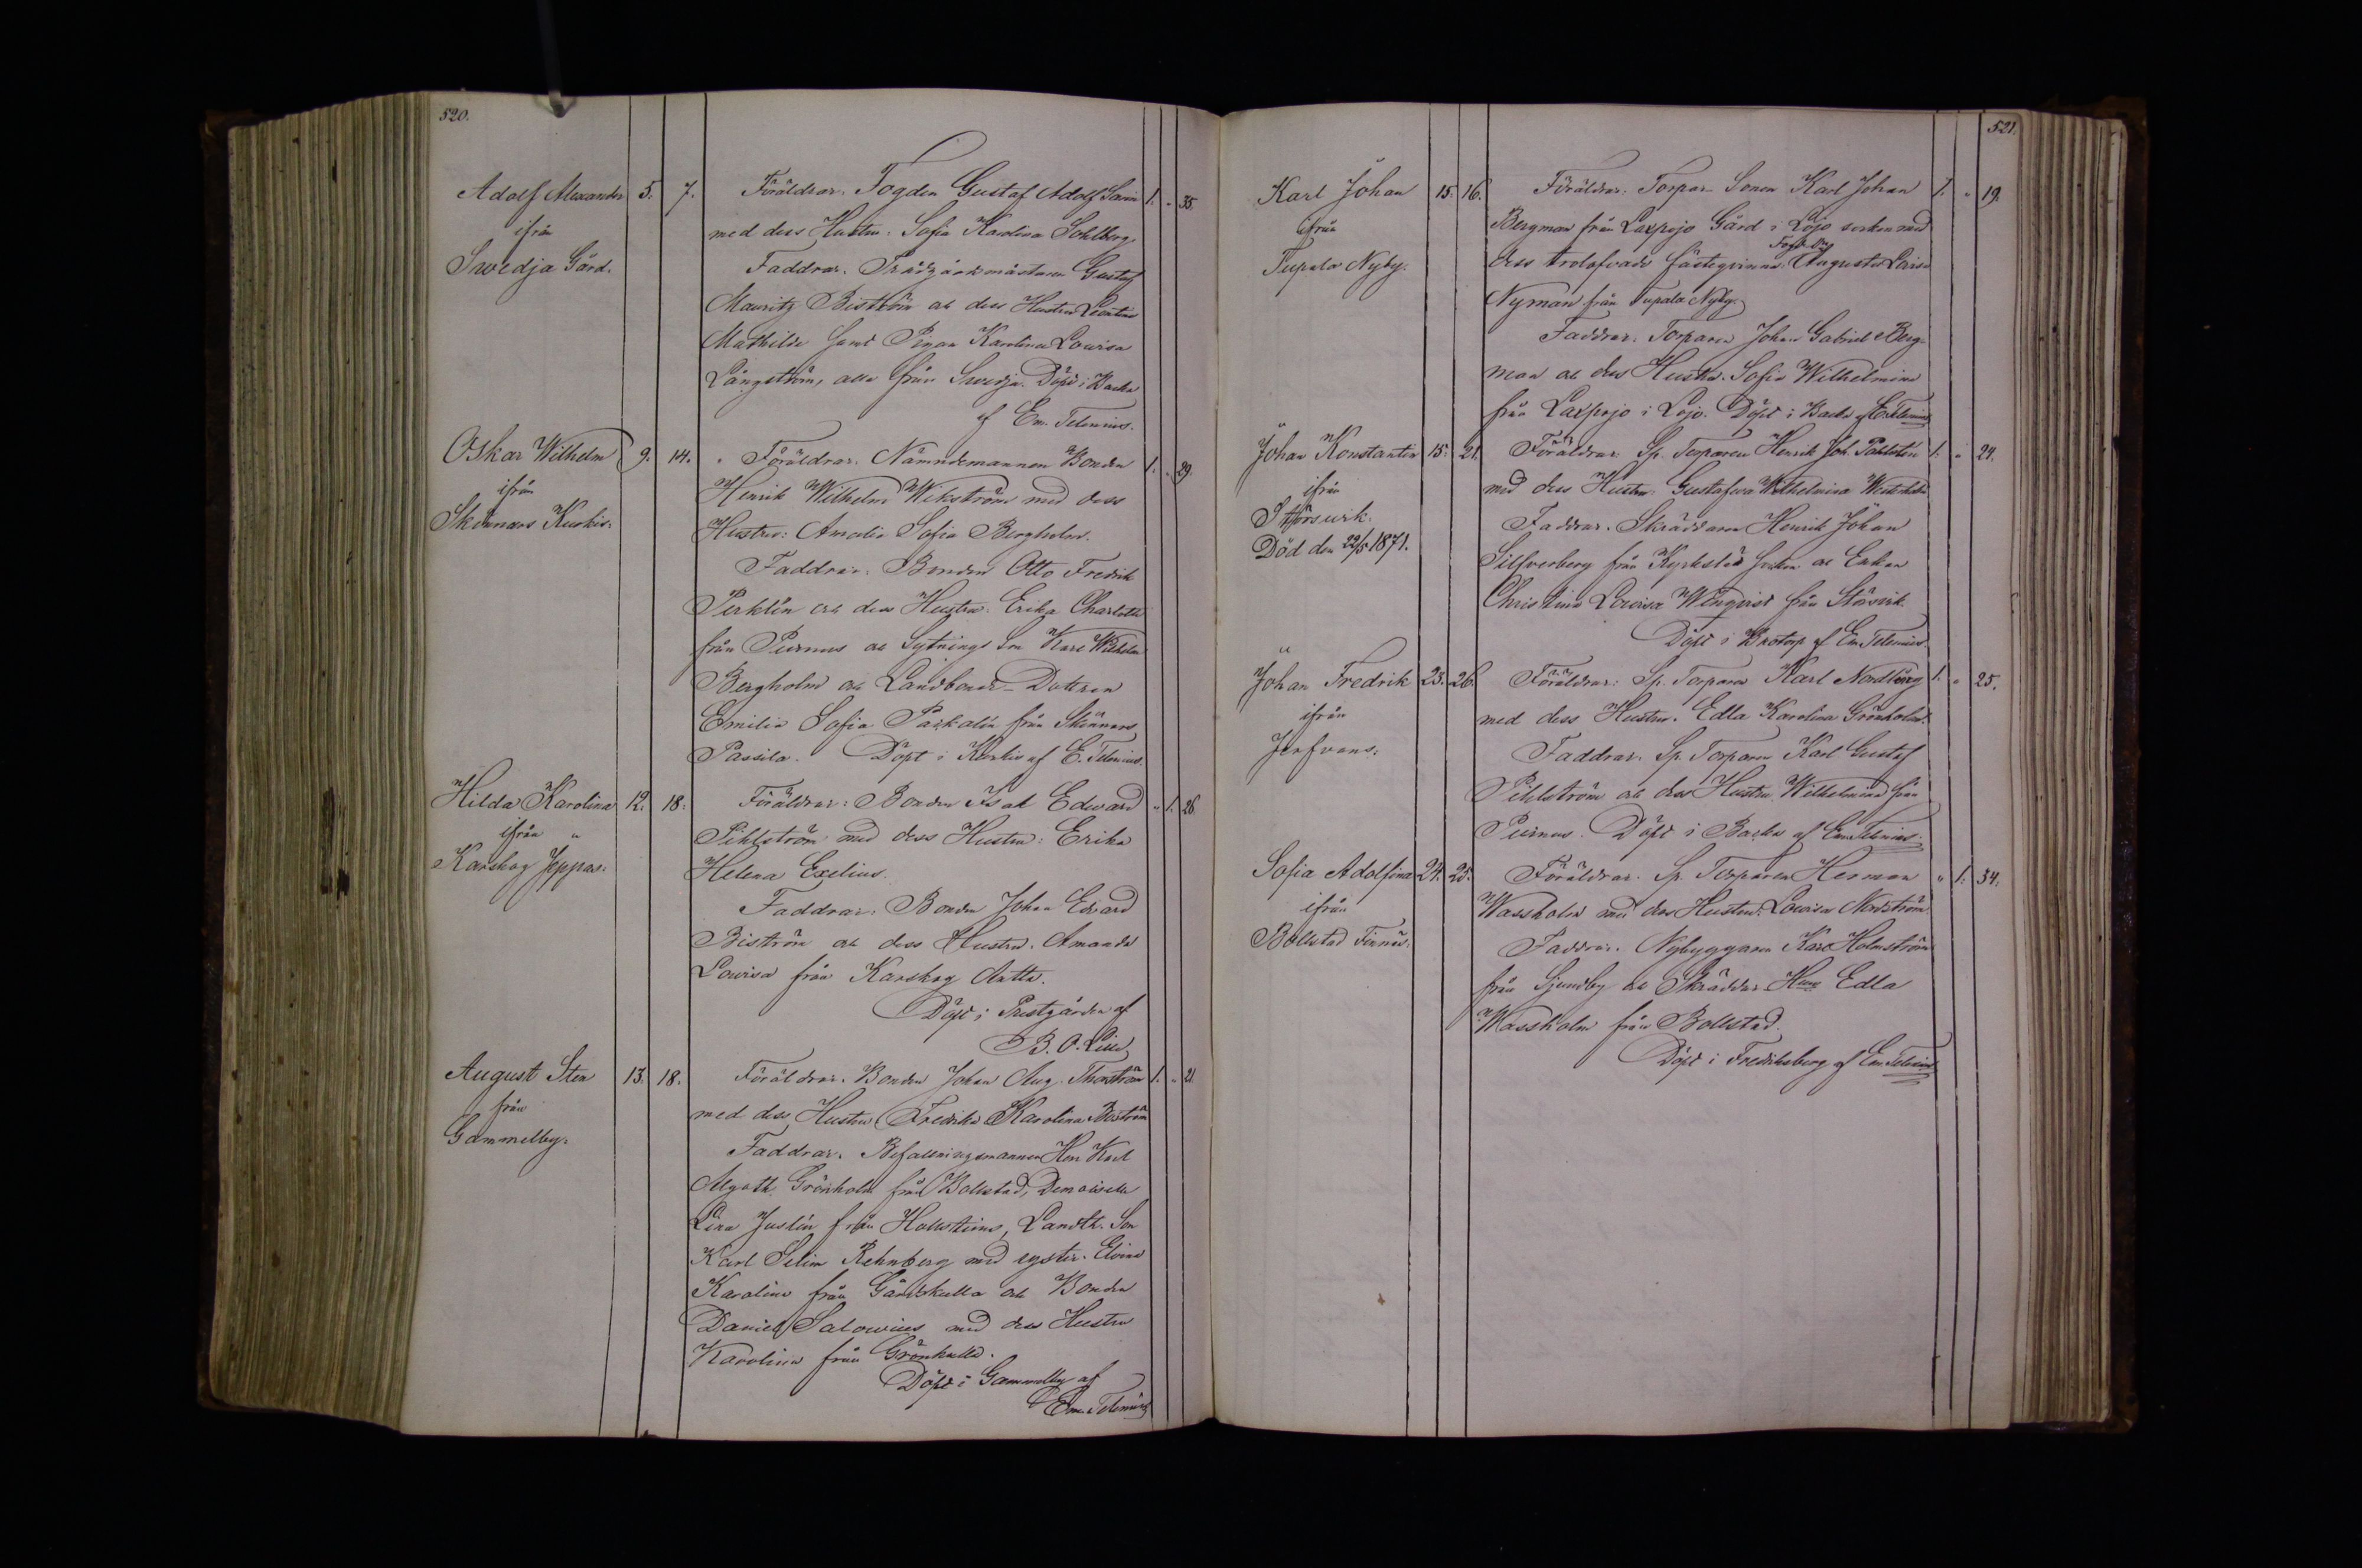 520.
Adolf Alexander 5. 7. Föräldrar: Fogden Gustaf Adolf Sarin 1. " 35.
ifrån med dess Hustru: Sofia Karolina Sohlberg.
Swedja Gård. Faddrar: Trädgårdsmästaren Gustaf
Mauritz Biström och dess Hustru Leontina
Mathilda samt Pigan Karolina Lovisa
Långström, alla från Swedja. Döpt i Backa
af Em. Telenius.
Oskar Wilhelm 9. 14. Föräldrar: Nämndemannen Bonden 1. " 29.
ifrån Henrik Wilhelm Wikström med dess
Skinnars Kurkis. Hustru: Amalia Sofia Bergholm.
Faddrar: Bonden Otto Fredrik
Perklén och dess Hustru: Erika Charlotta
från Purnus och Sytnings Son Karl Wilhelm
Bergholm och Landbonde-Dottren
Emilia Sofia Paskalin från Skinnars
Passila. Döpt i Kurkis af E. Telenius.
Hilda Karolina 12. 18. Föräldrar: Bonden Isak Edvard " 1. 26.
ifrån Pihlström med dess Hustru: Erika
Karskog Jeppas. Helena Exelius.
Faddrar: Bonden Johan Edvard
Biström och dess Hustru: Amanda
Lovisa från Karskog Antta.
Döpt i Prestgården af
B. O. Lille
August Sten 13. 18. Föräldrar: Bonden Johan Aug. Thorström 1. " 21
från med dess Hustru Fredrika Karolina Boström
Gammelby. Faddrar: Befallningsmannen Herr Karl
Agath. Grönholm från Bollstad, Demoiselle
Lina Juslin från Hollsteins, Landtb. Son
Karl Selim Rehnberg med syster Elvina
Karolina från Gårdskulla och Bonden
Daniel Salovius med dess Hustru
Karolina från Grönkulla.
Döpt i Gammelby af
Em. Telenius
521.
Karl Johan 15. 16. Föräldrar: Torpar-Sonen Karl Johan 1. " 19.
ifrån Bergman från Laxpojo Gård i Lojo socken med
Tupala Nyby. dess trolofvade fästeqvinna: Augusta Lovisa
Nyman från Tupala Nyby.
Faddrar: Torparen Johan Gabriel Berg-
man och dess Hustru: Sofia Wilhelmina
från Laxpojo i Lojo. Döpt i Backa af E. Telenius
Johan Konstantin 15. 21. Föräldrar: Sp. Torparen Henrik Joh. Pahlstén 1. " 24.
ifrån med dess Hustru: Gustafva Wilhelmina
Störsvik. Faddrar: Skräddaren Henrik Johan
Död den 22/5 1871. Silfverberg från Kyrkslätt socken och Enkan
Christina Lovisa Wenqvist från Störsvik.
Döpt i Brotorp af Em. Telenius.
Johan Fredrik 23. 26. Föräldrar: Sp. Torparen Karl Nordberg 1. " 25.
ifrån med dess Hustru: Edla Karolina Grönholm.
Jerfvans. Faddrar: Sp. Torparen Karl Gustaf
Pihlström och dess Hustru Wilhelmina från
Purnus. Döpt i Backa af Em. Telenius.
Sofia Adolfina 24. 25. Föräldrar: Sp. Torparen Herman " 1. 34.
ifrån Wassholm med dess Hustru: Lovisa Nordström.
Bollstad Finnäs. Faddrar: Nybyggaren Karl Holmström
från Sjundby och Skräddar Hu Edla
Wassholm från Bollstad.
Döpt i Fredriksberg af Em. Telenius